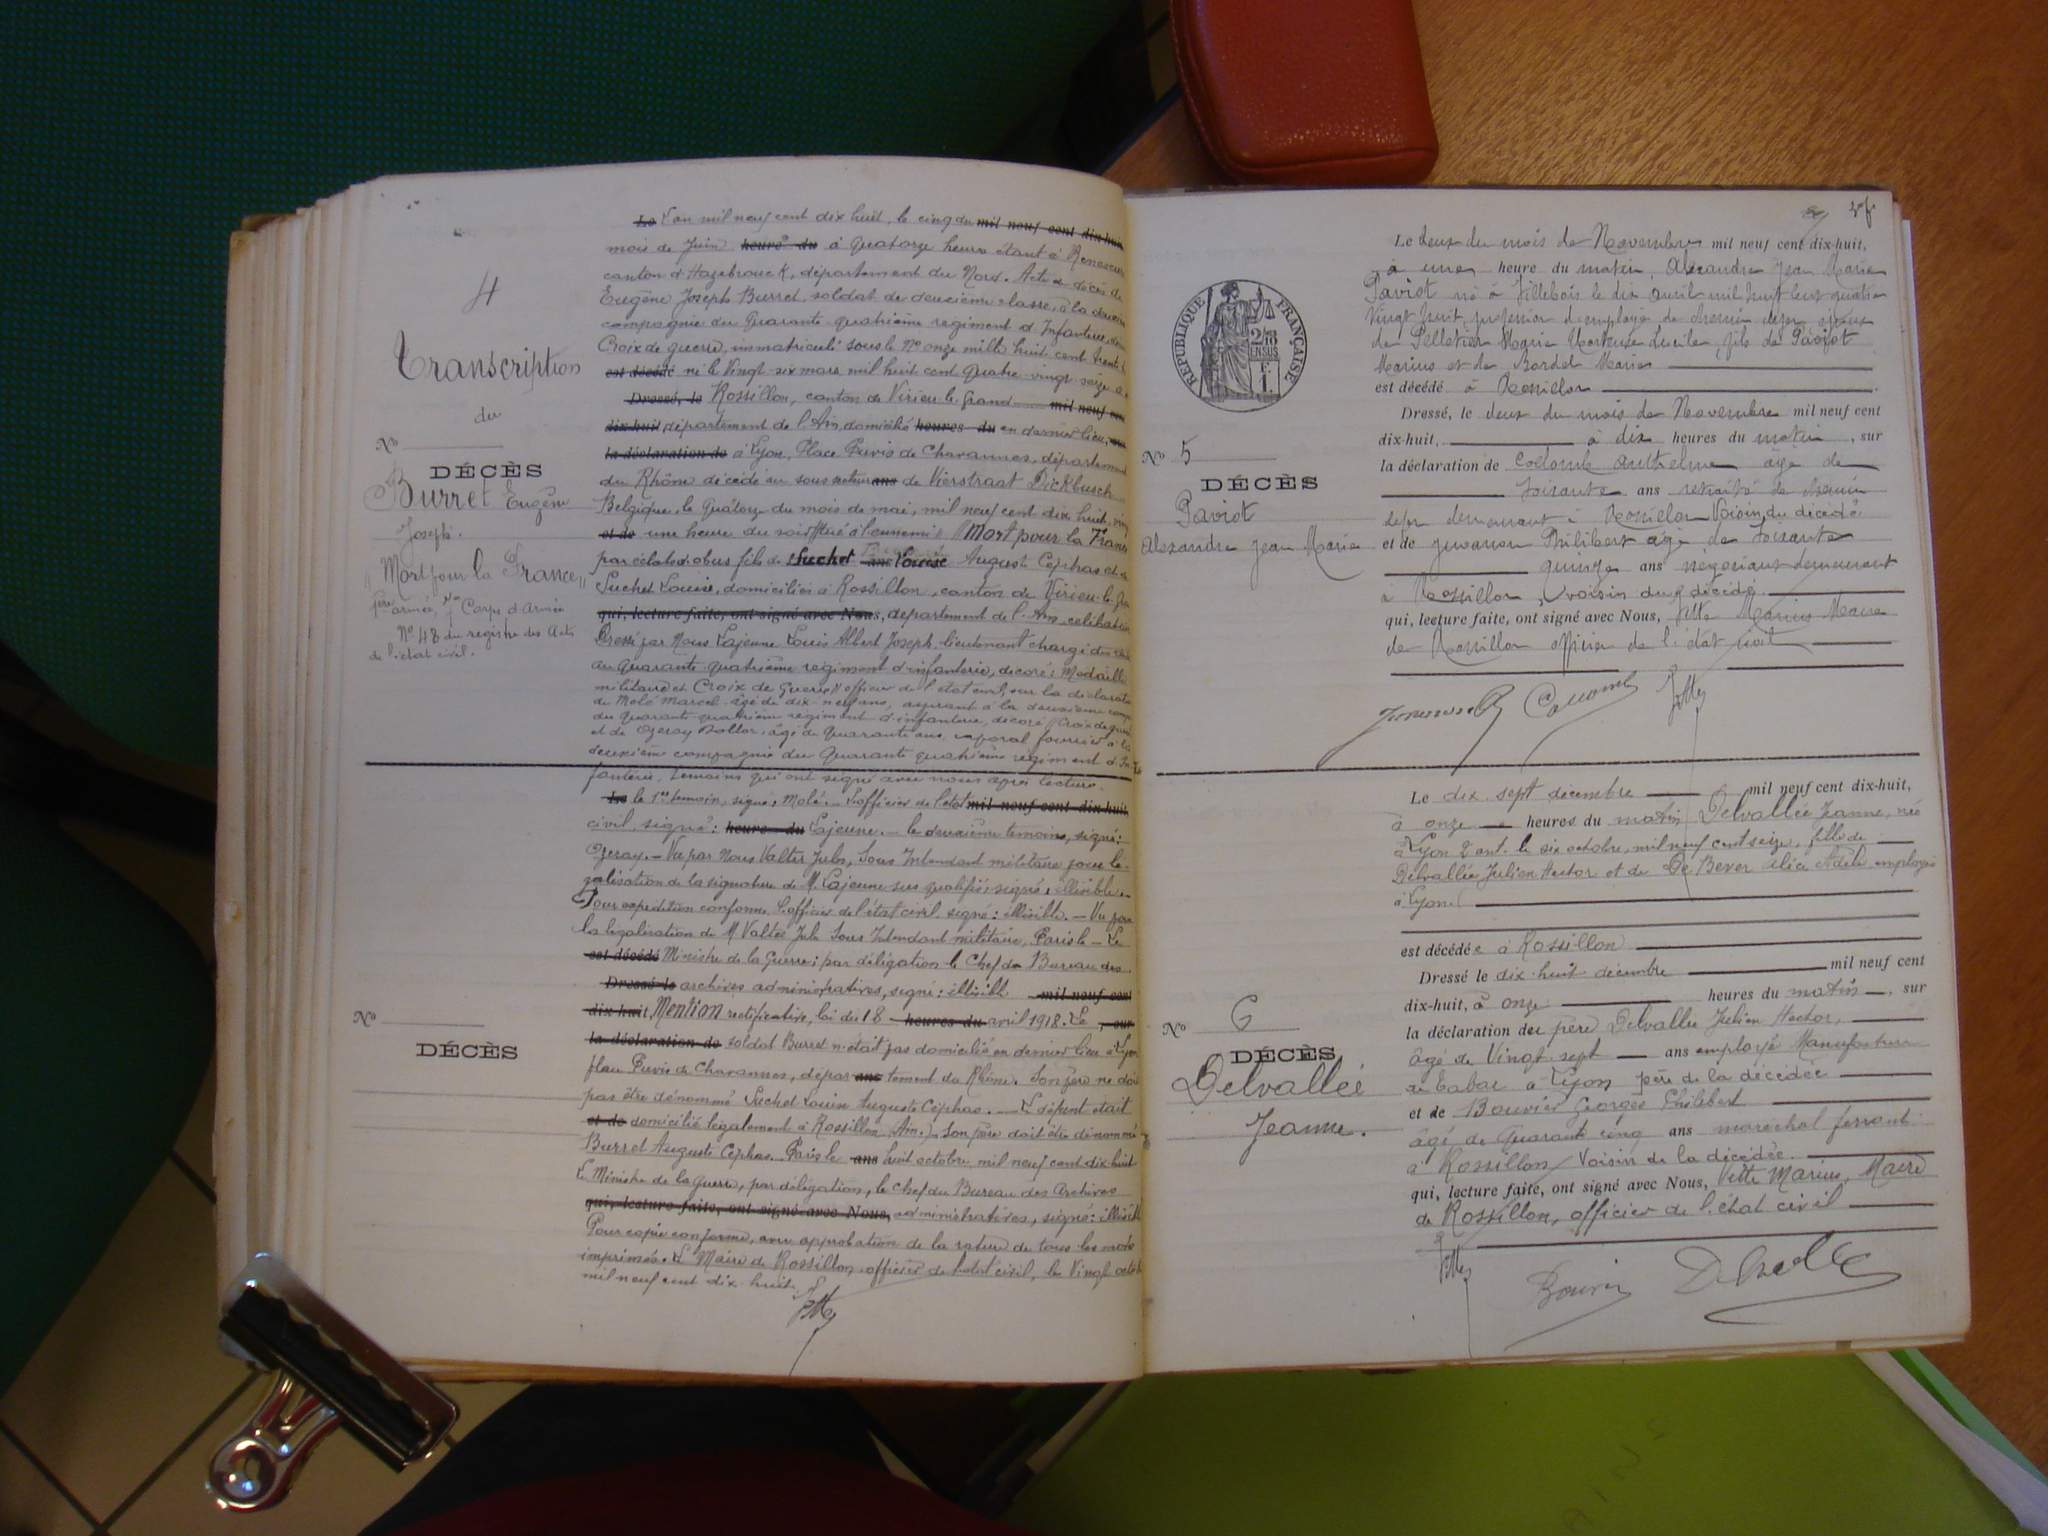 4
Transcription
du
No
DÉCÈS
Burret Eugène
Joseph.
"Mort pour la France"
armée, Corps d'Armée
No 48 du registre des Actes
de l'état civil.
Le L'an mil neuf cent dix huit, le cinq du mil neuf cent dix-huit
mois de Juin heures du à Quatorze heures étant à Renescure
canton d'Hazebrouck, département du Nord. Acte de décès de
Eugène Joseph Burret, soldat de deuxième classe, à la
compagnie du Quarante quatrième régiment d'Infanterie,
Croix de guerre, immatriculé sous le No onze mille huit cent
est décédé né le Vingt-six mars mil huit cent Quatre-vingt-seize à
Dressé, le Rossillon, canton de Virieu-le-Grand mil neuf cent
dix-huit département de l'Ain, domicilié heures du en dernier lieu,
la déclaration de à Lyon, Place Puvis de Chavannes, département
du Rhône décédé au sous secteur ans de Vierstraat Dickbusch
Belgique, le Quatorze du mois de mai, mil neuf cent dix huit,
et de une heure du soir tué à l'ennemi "Mort pour la France
par éclats d'obus fils de Suchet ans Louise Auguste Céphas et de
Suchet Louise, domiciliés à Rossillon, canton de Virieu-le-
qui, lecture faite, ont signé avec Nous, département de l'Ain, célibataire
Dressé par Nous Lajeune Louis Albert Joseph, lieutenant chargé des
au Quarante quatrième régiment d'infanterie, décoré: Médaille
militaire et Croix de Guerre, officier de l'état civil, sur la déclaration
de Molé Marcel âgé de dix-neuf ans, aspirant à la deuxième
du Quarante quatrième régiment d'infanterie, décoré Croix de guerre
et de Ozeray âgé de Quarante ans, caporal fourrier à la
deuxième compagnie du Quarante quatrième régiment d'In-
fanterie, témoins qui ont signé avec nous après lecture.
Le le 1er témoin, signé: Molé. L'officier de l'état mil neuf cent dix-huit,
civil, signé: heures du Lajeune. le deuxième témoin, signé:
Ozeray. Vu par Nous Valter Jules, Sous Intendant militaire pour lé-
galisation de la signature de M. Lajeune sus qualifié, signé: illisible.
Pour expédition conforme l'officier de l'état civil signé: illisible. Vu pour
la légalisation de M. Valter Jules Sous Intendant militaire, Paris le Le
est décédé Ministre de la Guerre; par délégation le Chef du Bureau des
Dressé le archives administratives, signé: illisible mil neuf cent
dix-huit, Mention rectificative, loi du 18 heures du avril 1918. Le , sur
la déclaration de soldat Burret n'était pas domicilié en dernier lieu à Lyon
place Puvis de Chavannes, dépar ans tement du Rhône. Son père ne doit
pas être dénommé Suchet Louise Auguste Céphas. Le défunt était
et de domicilié légalement à Rossillon (Ain). Son père doit être dénommé
Burret Auguste Céphas. Paris le ans huit octobre mil neuf cent dix huit
Le Ministre de la Guerre, par délégation, le Chef du Bureau des Archives
qui, lecture faite, ont signé avec Nous, administratives, signé: illisible
Pour copie conforme, avec approbation de la rature de tous les mots
imprimés. Le Maire de Rossillon, officier de l'état civil, le Vingt octobre
mil neuf cent dix huit.
No
DÉCÈS
RÉPUBLIQUE FRANÇAISE
No 5
DÉCÈS
Paviot
Alexandre Jean Marie
Le deux du mois de Novembre mil neuf cent dix-huit,
à une heure du matin, Alexandre Jean Marie
Paviot né à Villebois le dix avril mil huit cent quatre
vingt huit profession d'employé de chemin de fer époux
de Pelletier Marie Hortense Lucile, fils de Paviot
Marius et de Bordel Marie
est décédé à Rossillon
Dressé, le deux du mois de Novembre mil neuf cent
dix-huit, à dix heures du matin, sur
la déclaration de Collomb Anthelme âgé de
soixante ans retraité de chemin
de fer demeurant à Rossillon Voisin du décédé
et de Philibert âgé de soixante
quinze ans négociant demeurant
à Rossillon, voisin du décédé
qui, lecture faite, ont signé avec Nous, Vitte Marius Maire
de Rossillon officier de l'état civil
No 6
DÉCÈS
Delvallée
Jeanne.
Le dix sept décembre mil neuf cent dix-huit,
à onze heures du matin Delvallée Jeanne, née
à Lyon 2e art. le six octobre, mil neuf cent seize, fille de
Delvallée Julien Hector et de De Bever Alice Adèle employée
à Lyon
est décédée à Rossillon
Dressé le dix-huit décembre mil neuf cent
dix-huit, à onze heures du matin, sur
la déclaration de père Delvallée Julien Hector,
âgé de Vingt sept ans employé Manufacture
de Tabac à Lyon père de la décédée
et de Bouvier Georges Philibert
âgé de Quarante cinq ans maréchal ferrant
à Rossillon Voisin de la décédée.
qui, lecture faite, ont signé avec Nous, Vitte Marius, Maire
de Rossillon, officier de l'état civil